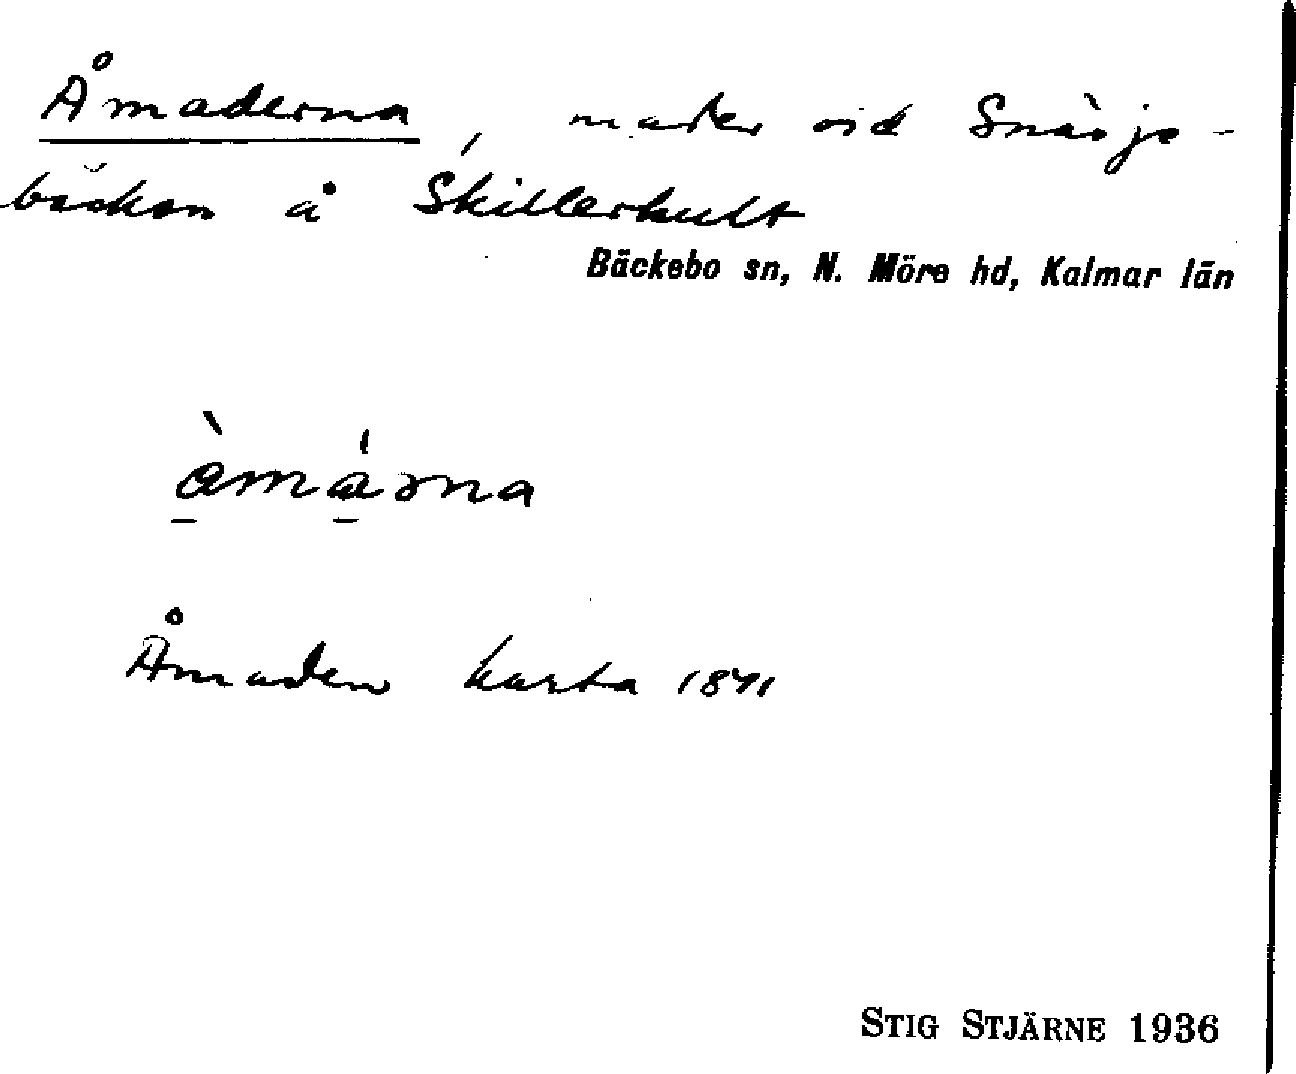 Åmaderna, mader vid Snärje-
bäcken å Skillerhult
Bäckebo sn, N. Möre hd, Kalmar län
åmáərna
Åmaden karta 1871
STIG STJÄRNE 1936